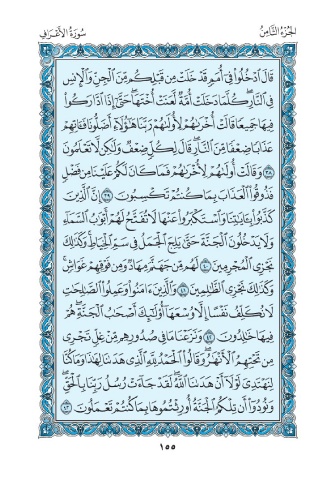 الجزء الثامن
سورة الأعراف
قَالَ ٱدْخُلُوا۟ فِىٓ أُمَمٍ قَدْ خَلَتْ مِن قَبْلِكُم مِّنَ ٱلْجِنِّ وَٱلْإِنسِ
فِى ٱلنَّارِ ۖ كُلَّمَا دَخَلَتْ أُمَّةٌ لَّعَنَتْ أُخْتَهَا ۖ حَتَّىٰٓ إِذَا ٱدَّارَكُوا۟
فِيهَا جَمِيعًا قَالَتْ أُخْرَىٰهُمْ لِأُولَىٰهُمْ رَبَّنَا هَـٰٓؤُلَآءِ أَضَلُّونَا فَـَٔاتِهِمْ
عَذَابًا ضِعْفًا مِّنَ ٱلنَّارِ ۖ قَالَ لِكُلٍّ ضِعْفٌ وَلَـٰكِن لَّا تَعْلَمُونَ
٣٨ وَقَالَتْ أُولَىٰهُمْ لِأُخْرَىٰهُمْ فَمَا كَانَ لَكُمْ عَلَيْنَا مِن فَضْلٍ
فَذُوقُوا۟ ٱلْعَذَابَ بِمَا كُنتُمْ تَكْسِبُونَ ٣٩ إِنَّ ٱلَّذِينَ
كَذَّبُوا۟ بِـَٔايَـٰتِنَا وَٱسْتَكْبَرُوا۟ عَنْهَا لَا تُفَتَّحُ لَهُمْ أَبْوَٰبُ ٱلسَّمَآءِ
وَلَا يَدْخُلُونَ ٱلْجَنَّةَ حَتَّىٰ يَلِجَ ٱلْجَمَلُ فِى سَمِّ ٱلْخِيَاطِ ۚ وَكَذَٰلِكَ
نَجْزِى ٱلْمُجْرِمِينَ ٤٠ لَهُم مِّن جَهَنَّمَ مِهَادٌ وَمِن فَوْقِهِمْ غَوَاشٍ ۚ
وَكَذَٰلِكَ نَجْزِى ٱلظَّـٰلِمِينَ ٤١ وَٱلَّذِينَ ءَامَنُوا۟ وَعَمِلُوا۟ ٱلصَّـٰلِحَـٰتِ
لَا نُكَلِّفُ نَفْسًا إِلَّا وُسْعَهَآ أُو۟لَـٰٓئِكَ أَصْحَـٰبُ ٱلْجَنَّةِ ۖ هُمْ
فِيهَا خَـٰلِدُونَ ٤٢ وَنَزَعْنَا مَا فِى صُدُورِهِم مِّنْ غِلٍّ تَجْرِى
مِن تَحْتِهِمُ ٱلْأَنْهَـٰرُ ۖ وَقَالُوا۟ ٱلْحَمْدُ لِلَّهِ ٱلَّذِى هَدَىٰنَا لِهَـٰذَا وَمَا كُنَّا
لِنَهْتَدِىَ لَوْلَآ أَنْ هَدَىٰنَا ٱللَّهُ ۖ لَقَدْ جَآءَتْ رُسُلُ رَبِّنَا بِٱلْحَقِّ ۖ
وَنُودُوٓا۟ أَن تِلْكُمُ ٱلْجَنَّةُ أُورِثْتُمُوهَا بِمَا كُنتُمْ تَعْمَلُونَ ٤٣
١٥٥